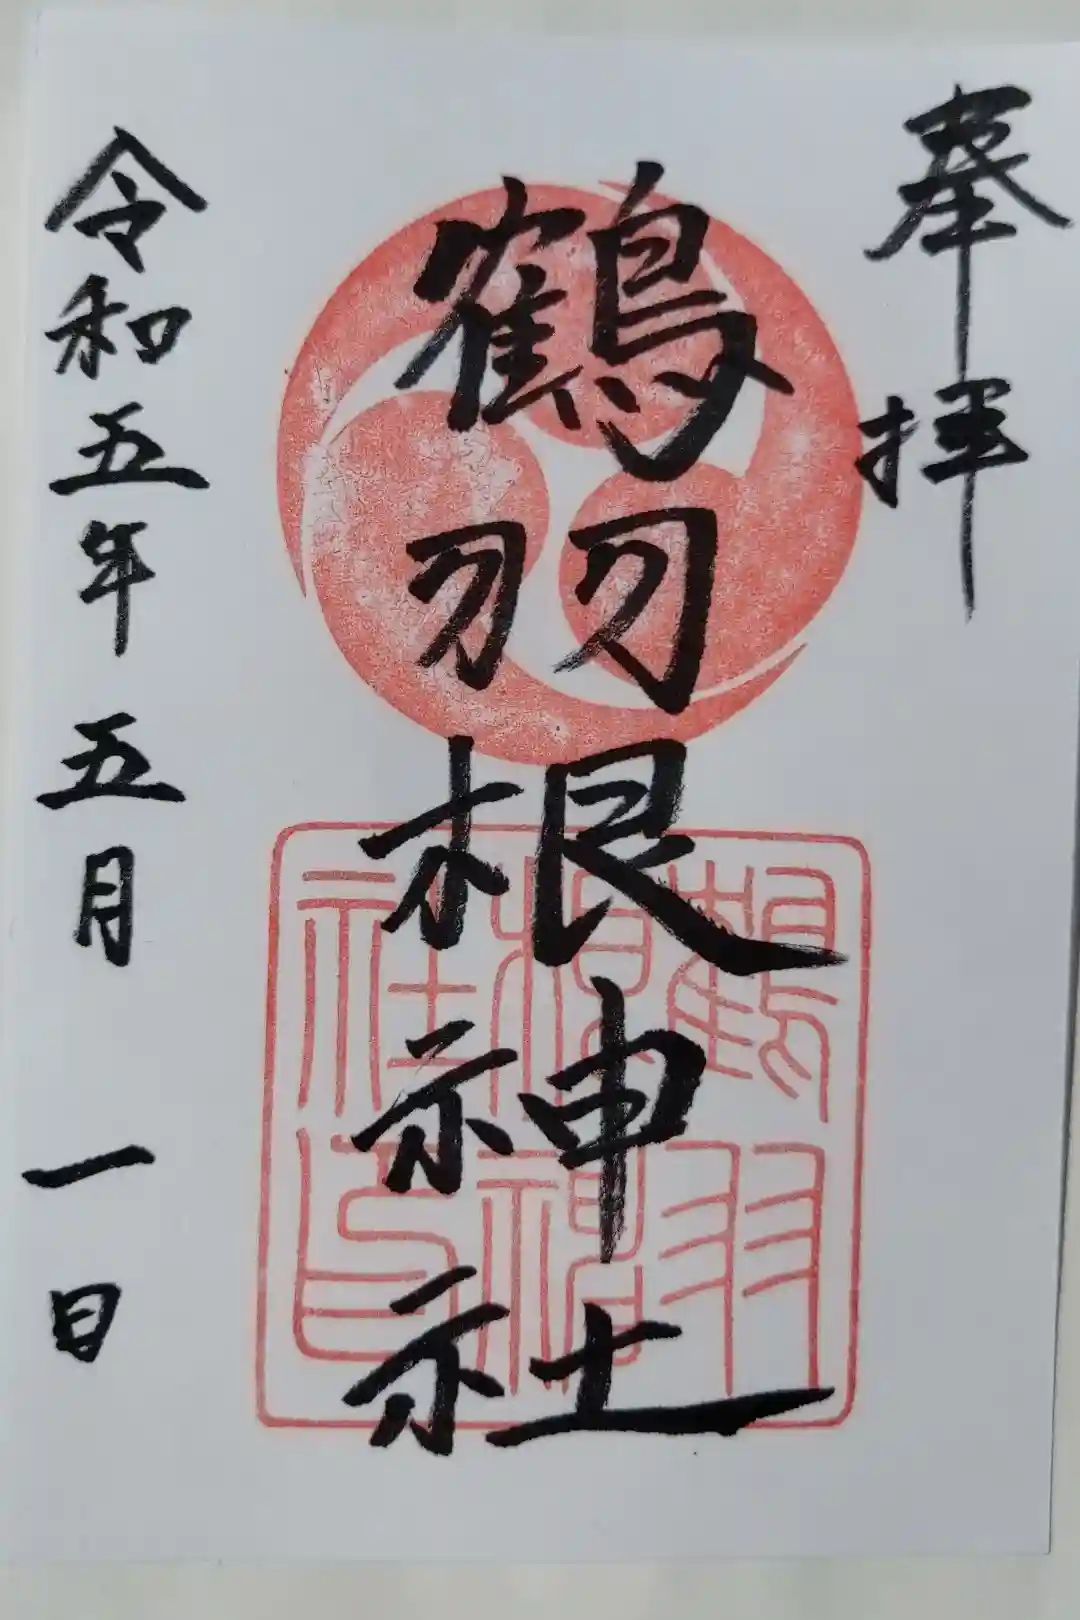 奉拝
鶴羽根神社
鶴羽根神社印
令和五年五月一日